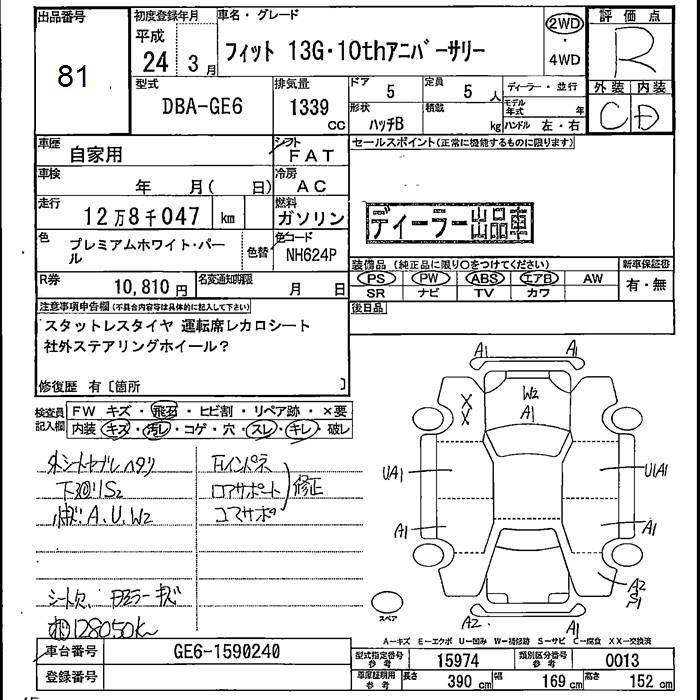 出品番号 初度登録年月 車名・グレード 評価点
81 平成 24年 3月 フィット 13G・10thアニバーサリー 2WD・4WD R
型式 排気量 ドア 定員 ディーラー・並行 外装 内装
DBA-GE6 1339 CC 5 5人 モデル年式 年 C D
形状 積載 ハッチB kg ハンドル 左・右
車歴 自家用 シフト FAT セールスポイント(正常に機能するものに限ります)
車検 年 月( 日) 冷房 AC
走行 12万8千047 km 燃料 ガソリン ディーラー出品車
色 プレミアムホワイト・パール 色替 色コード NH624P
装備品 (純正品に限り〇をつけてください) 新車保証書
R券 10,810円 名変通知期限 月 日 PS PW ABS エアB AW 有・無
SR ナビ TV カワ
注意事項申告欄(不具合内容等は具体的に記入して下さい) 後日品
スタットレスタイヤ 運転席レカロシート
社外ステアリングホイール?
修復歴 有〔箇所 〕
検査員記入欄 FW キズ・飛石・ヒビ割・リペア跡・×要
内装 キズ・汚レ・コゲ・穴・スレ・キレ・破レ
外シートヤブレヘタリ 左インパネ
下廻りS2 ロアサポート 修正
A.U.W2 コアサポ
シート欠
128050k
A1 A1
W2
A1
X
X
UA1 U1A1
A1 A1
A2
S1
A2 A1
スペア
A—キズ E—エクボ U—凹み W—補修跡 S—サビ C—腐食 XX—交換済
車台番号 GE6-1590240 型式指定番号参考 15974 類別区分番号参考 0013
登録番号 車庫証明用参考 長さ 390 cm 幅 169 cm 高さ 152 cm